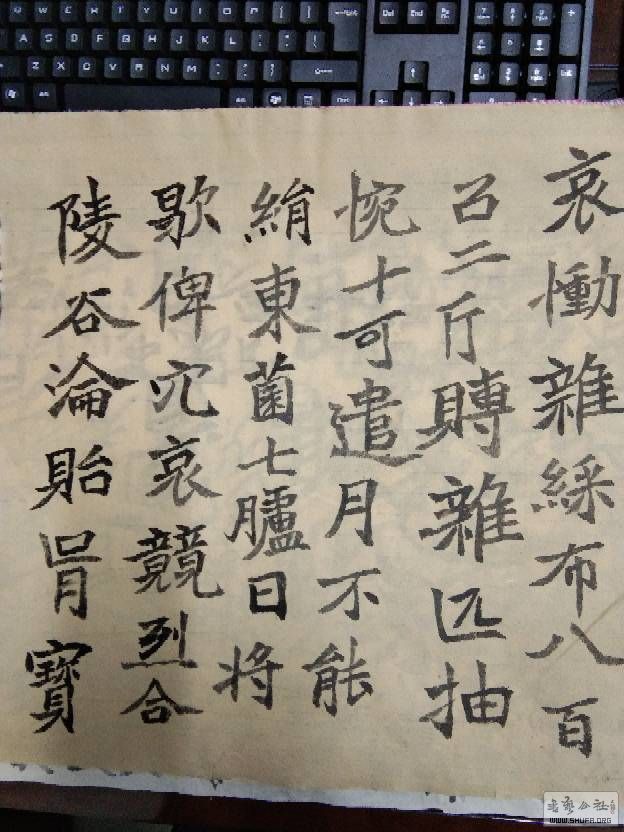 哀慟雜綵布八百
召二斤賻雜匹抽
惋十可遣月不能
絹東菌七臚日将
歌俾穴哀競烈合
陵谷淪貽寶
书法公社
WWW.SHUFA.ORG